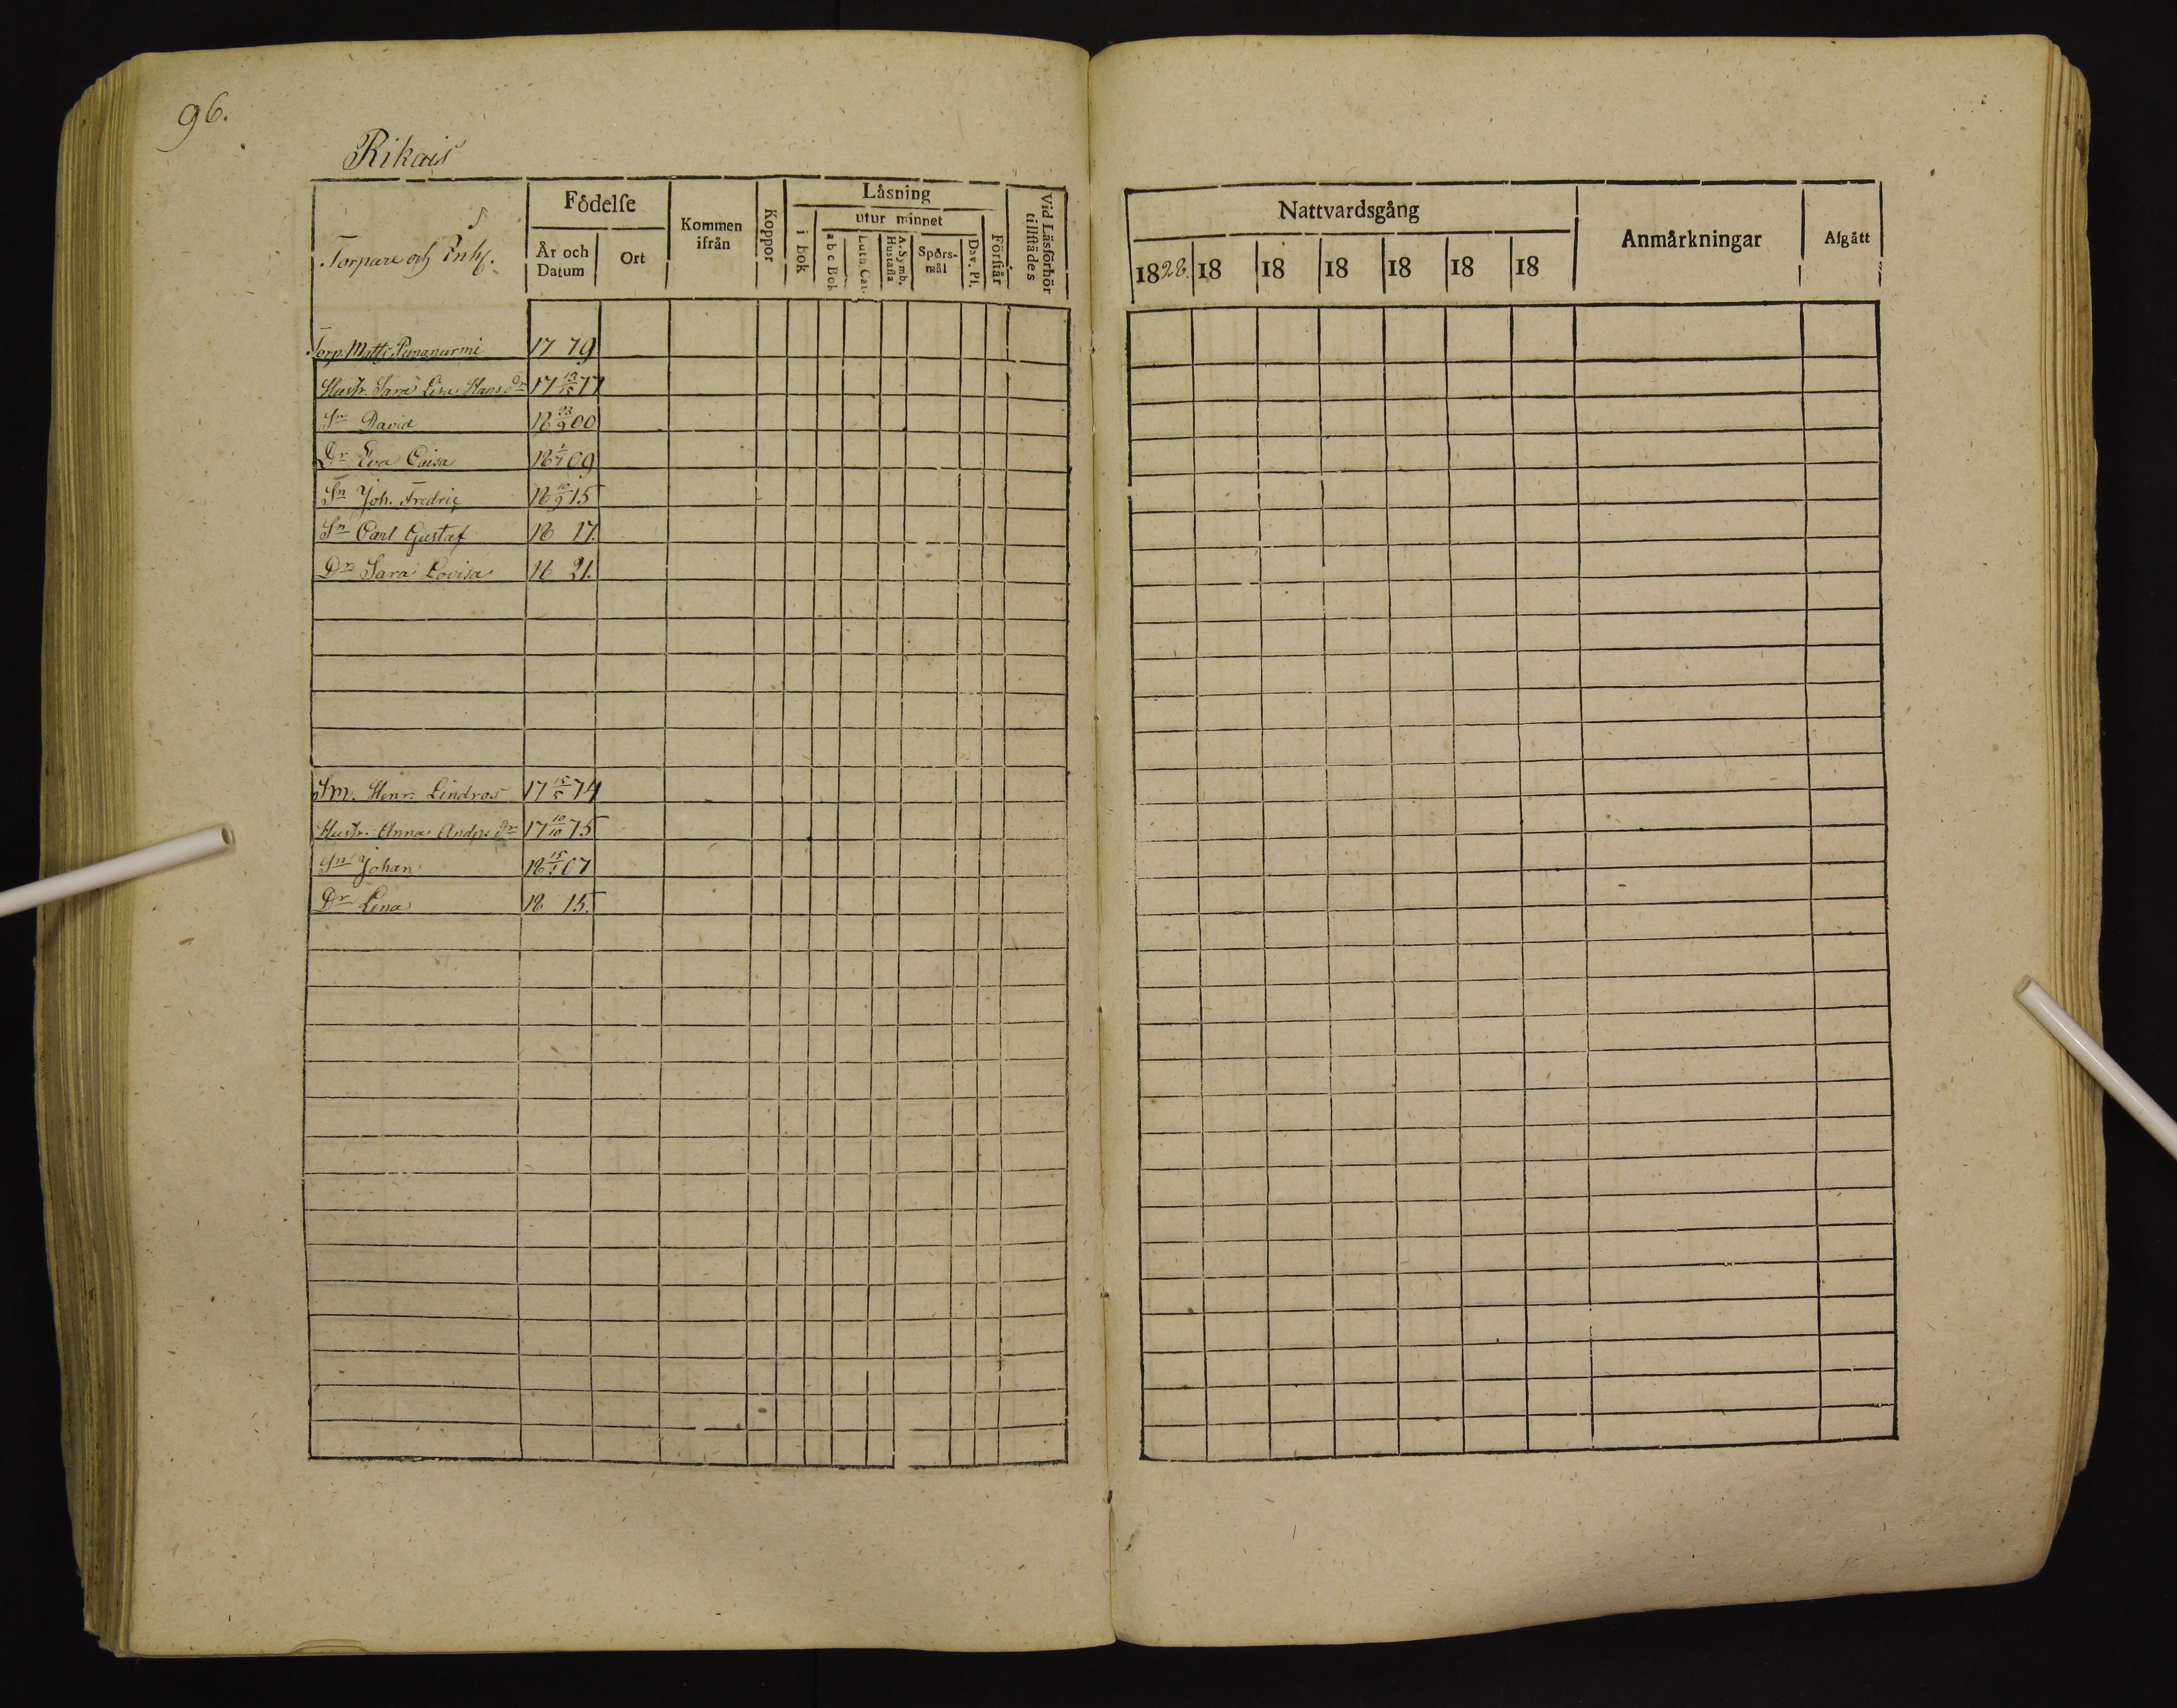 96.
Rikais
Torpare och Inh.
Födelse
År och Datum
Ort
Kommen ifrån
Koppor
Läsning
i bok
utur minnet
a b c Bok
Luth. Cat.
A. Symb. Hustafla
Spörs-mål
Dav. Ps.
Förstår
Vid Läsförhör tillstädes
Nattvardsgång
1828. 18 18 18 18 18 18
Anmärkningar
Afgått
Torp. Matts 17 79
Hustr. Sara Lisa Hans dr 17 77
Sn David 18 23/9 00
Dr Eva Caisa 18 09
Sn Joh. Fredric 18 10/9 15
Sn Carl Gustaf 18 17.
Dr Sara Lovisa 18 21.
Sm. Henr. Lindros 17 15/5 74
Hustr. Anna Anders dr 17 10/10 75
Sn Johan 18 07
Dr Lena 18 15.